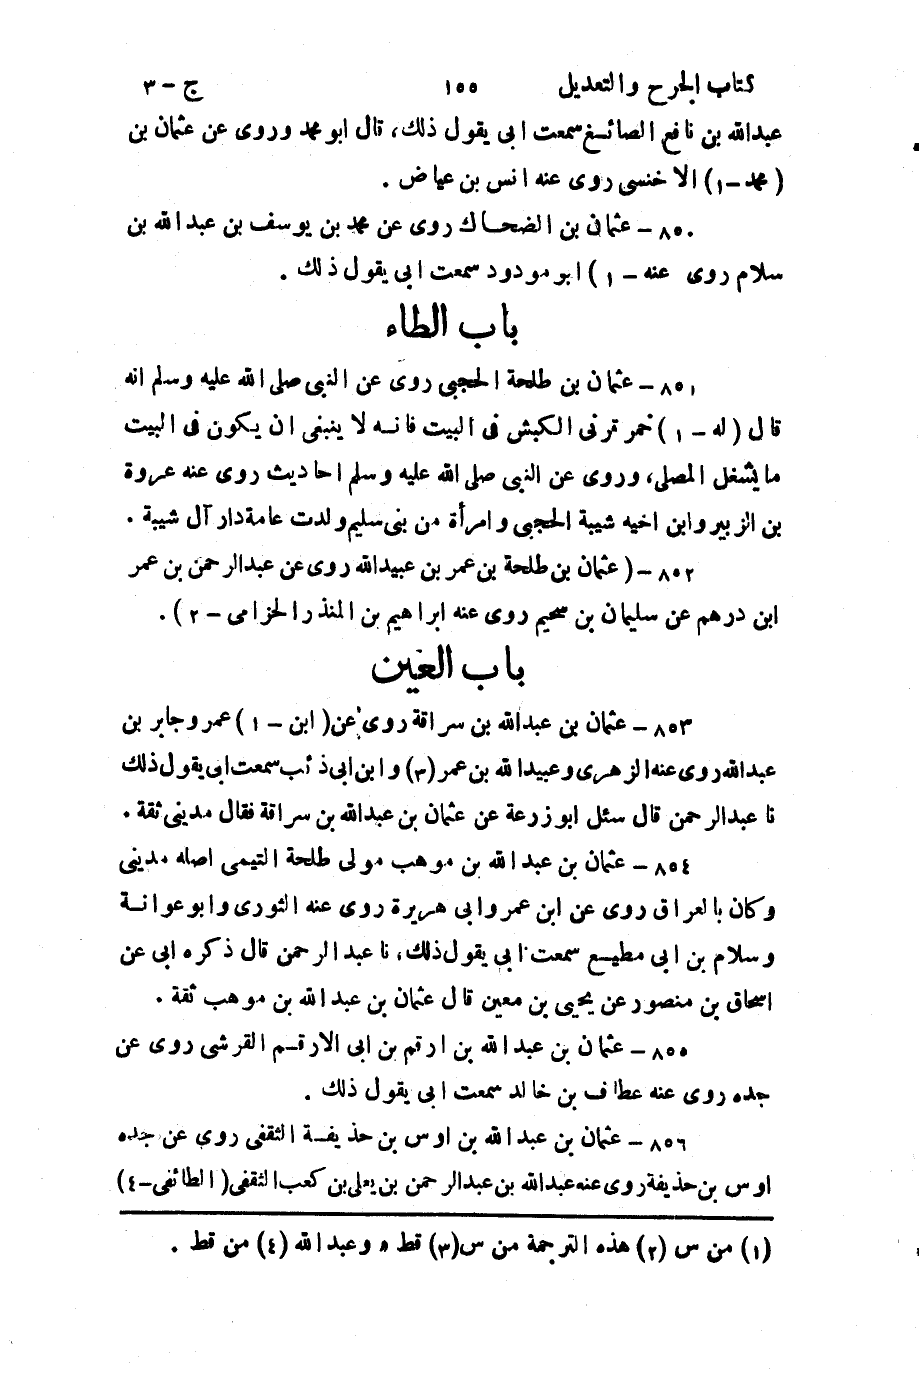 كتاب الجرح والتعديل ١٥٥ ج - ٣
عبدالله بن نافع الصائغ سمعت ابى يقول ذلك، قال ابو محمد وروى عن عثمان بن
( محمد - ١) الاخنسى روى عنه انس بن عياض .
٨٥٠ - عثمان بن الضحاك روى عن محمد بن يوسف بن عبد الله بن
سلام روى عنه - ١ ) ابو مودود سمعت ابى يقول ذلك .
باب الطاء
٨٥١ - عثمان بن طلحة الحجبى روى عن النبى صلى الله عليه وسلم انه
قال ( له - ١ ) خمر قرنى الكبش فى البيت فانه لا ينبغى ان يكون فى البيت
ما يشغل المصلى، وروى عن النبى صلى الله عليه وسلم احاديث روى عنه عروة
بن الزبير وابن اخيه شيبة الحجبى وامرأة من بنى سليم ولدت عامة دار آل شيبة .
٨٥٢ - ( عثمان بن طلحة بن عمر بن عبيدالله روى عن عبدالرحمن بن عمر
ابن درهم عن سليمان بن سحيم روى عنه ابراهيم بن المنذر الحزامى - ٢ ) .
باب العين
٨٥٣ - عثمان بن عبدالله بن سراقة روى عن ( ابن - ١ ) عمر وجابر بن
عبدالله روى عنه الزهرى وعبيدالله بن عمر (٣) وابن ابى ذئب سمعت ابى يقول ذلك
نا عبدالرحمن قال سئل ابو زرعة عن عثمان بن عبدالله بن سراقة فقال مدينى ثقة .
٨٥٤ - عثمان بن عبد الله بن موهب مولى طلحة التيمى اصله مدينى
وكان بالعراق روى عن ابن عمر وابى هريرة روى عنه الثورى وابو عوانة
وسلام بن ابى مطيع سمعت ابى يقول ذلك، نا عبد الرحمن قال ذكره ابى عن
اسحاق بن منصور عن يحيى بن معين قال عثمان بن عبد الله بن موهب ثقة .
٨٥٥ - عثمان بن عبد الله بن ارقم بن ابى الارقم القرشى روى عن
جده روى عنه عطاف بن خالد سمعت ابى يقول ذلك .
٨٥٦ - عثمان بن عبد الله بن اوس بن حذيفة الثقفى روى عن جده
اوس بن حذيفة روى عنه عبدالله بن عبدالرحمن بن يعلى بن كعب الثقفى ( الطائفى - ٤ )
(١) من س (٢) هذه الترجمة من س (٣) قط ه وعبد الله (٤) من قط .